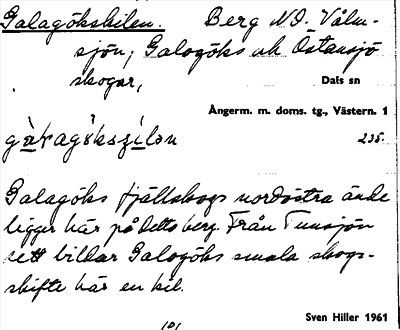 Galagökskilen. Berg N.O. Välm-
sjön, Galagöks och Östansjö
skogar,
Dals sn
Ångerm. m. doms. tg., Västern. 1
235.
Galagöks fjällskogs nordöstra ände
ligger här på detta berg. Från Tunsjön
sett bildar Galagöks smala skogs-
skifte här en kil.
Sven Hiller 1961